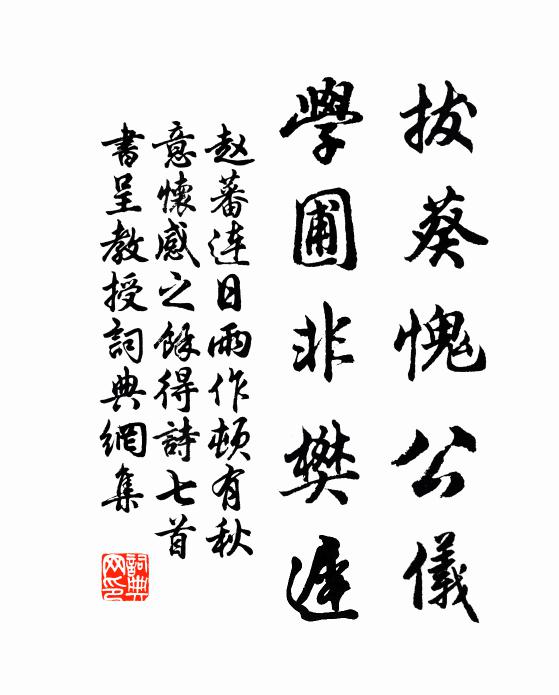 拔葵愧公儀
學圃非樊遲
赵蕃連日雨作頓有秋
意懷感之餘得詩七首
書呈教授詞典網集
詞典网印